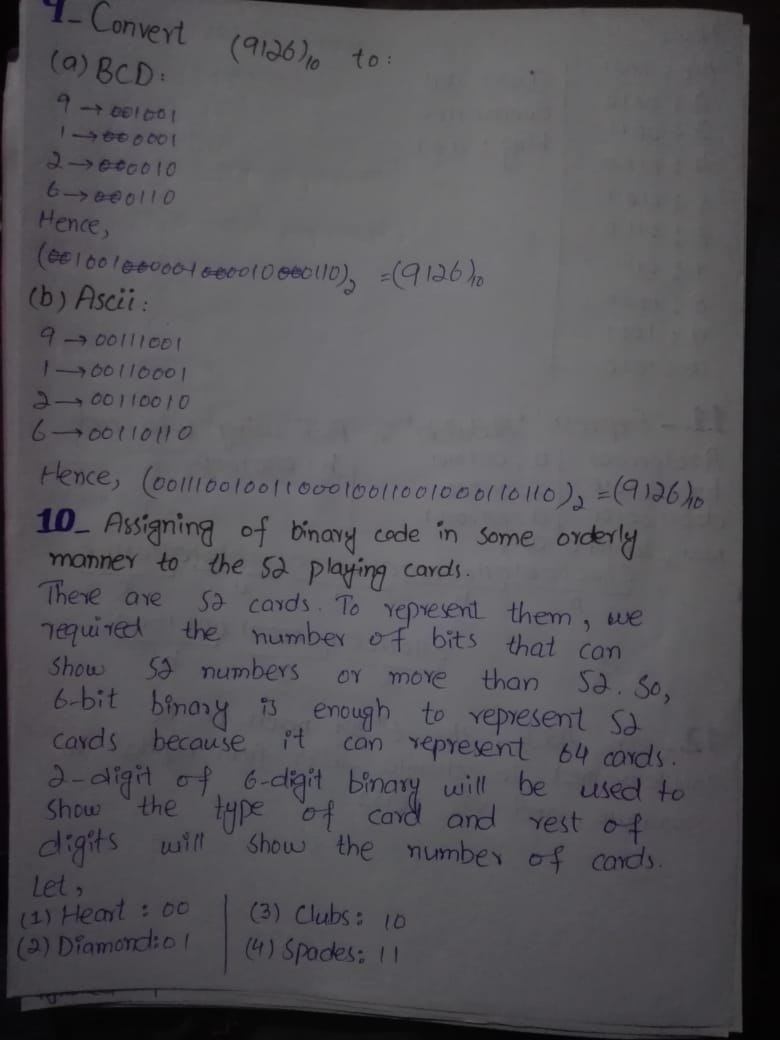 9- Convert (9126)₁₀ to:
(a) BCD:
9 → 001001
1 → 000001
2 → 000010
6 → 000110
Hence,
(001001000001000010000110)₂ = (9126)₁₀
(b) Ascii:
9 → 00111001
1 → 00110001
2 → 00110010
6 → 00110110
Hence, (00111001001100010011001000110110)₂ = (9126)₁₀
10- Assigning of binary code in some orderly
manner to the 52 playing cards.
There are 52 cards. To represent them, we
required the number of bits that can
show 52 numbers or more than 52. So,
6-bit binary is enough to represent 52
cards because it can represent 64 cards.
2-digit of 6-digit binary will be used to
show the type of card and rest of
digits will show the number of cards.
Let,
(1) Heart : 00 (3) Clubs: 10
(2) Diamond: 01 (4) Spades: 11